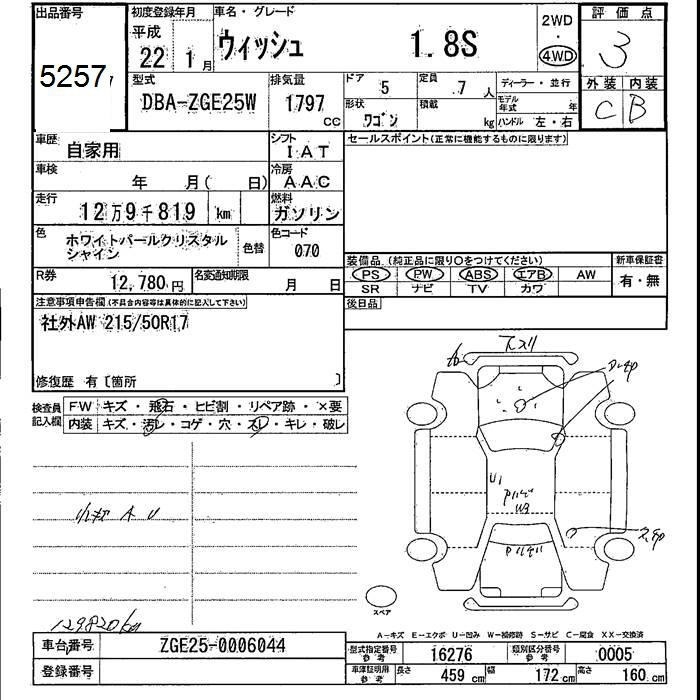 出品番号
5257
初度登録年月
平成
22 1月
車名・グレード
ウィッシュ 1.8S
2WD
・
4WD
評価点
3
外装 内装
C B
型式
DBA-ZGE25W
排気量
1797
cc
ドア 5
定員 7 人
形状 ワゴン
積載 kg
ディーラー・並行
モデル年式 年
ハンドル 左・右
車歴 自家用
シフト IAT
セールスポイント(正常に機能するものに限ります)
車検 年 月( 日)
冷房 AAC
走行 12万9千819 km
燃料 ガソリン
色 ホワイトパールクリスタル
シャイン
色替
色コード 070
R券 12,780円
名変通知期限 月 日
装備品(純正品に限り〇をつけてください)
新車保証書
PS PW ABS エアB AW
SR ナビ TV カワ
有・無
後日品
注意事項申告欄(不具合内容等は具体的に記入して下さい)
社外AW 215/50R17
修復歴 有〔箇所 〕
検査員
記入欄
FW キズ・飛石・ヒビ割・リペア跡・×要
内装 キズ・汚レ・コゲ・穴・スレ・キレ・破レ
小キズ A U
下スリ
U1
W3
スペア
129820km
A-キズ E-エクボ U-凹み W-補修跡 S-サビ C-腐食 XX-交換済
車台番号 ZGE25-0006044
登録番号
型式指定番号
参考
16276
類別区分番号
参考
0005
車庫証明用
参考
長さ 459 cm 幅 172 cm 高さ 160 cm